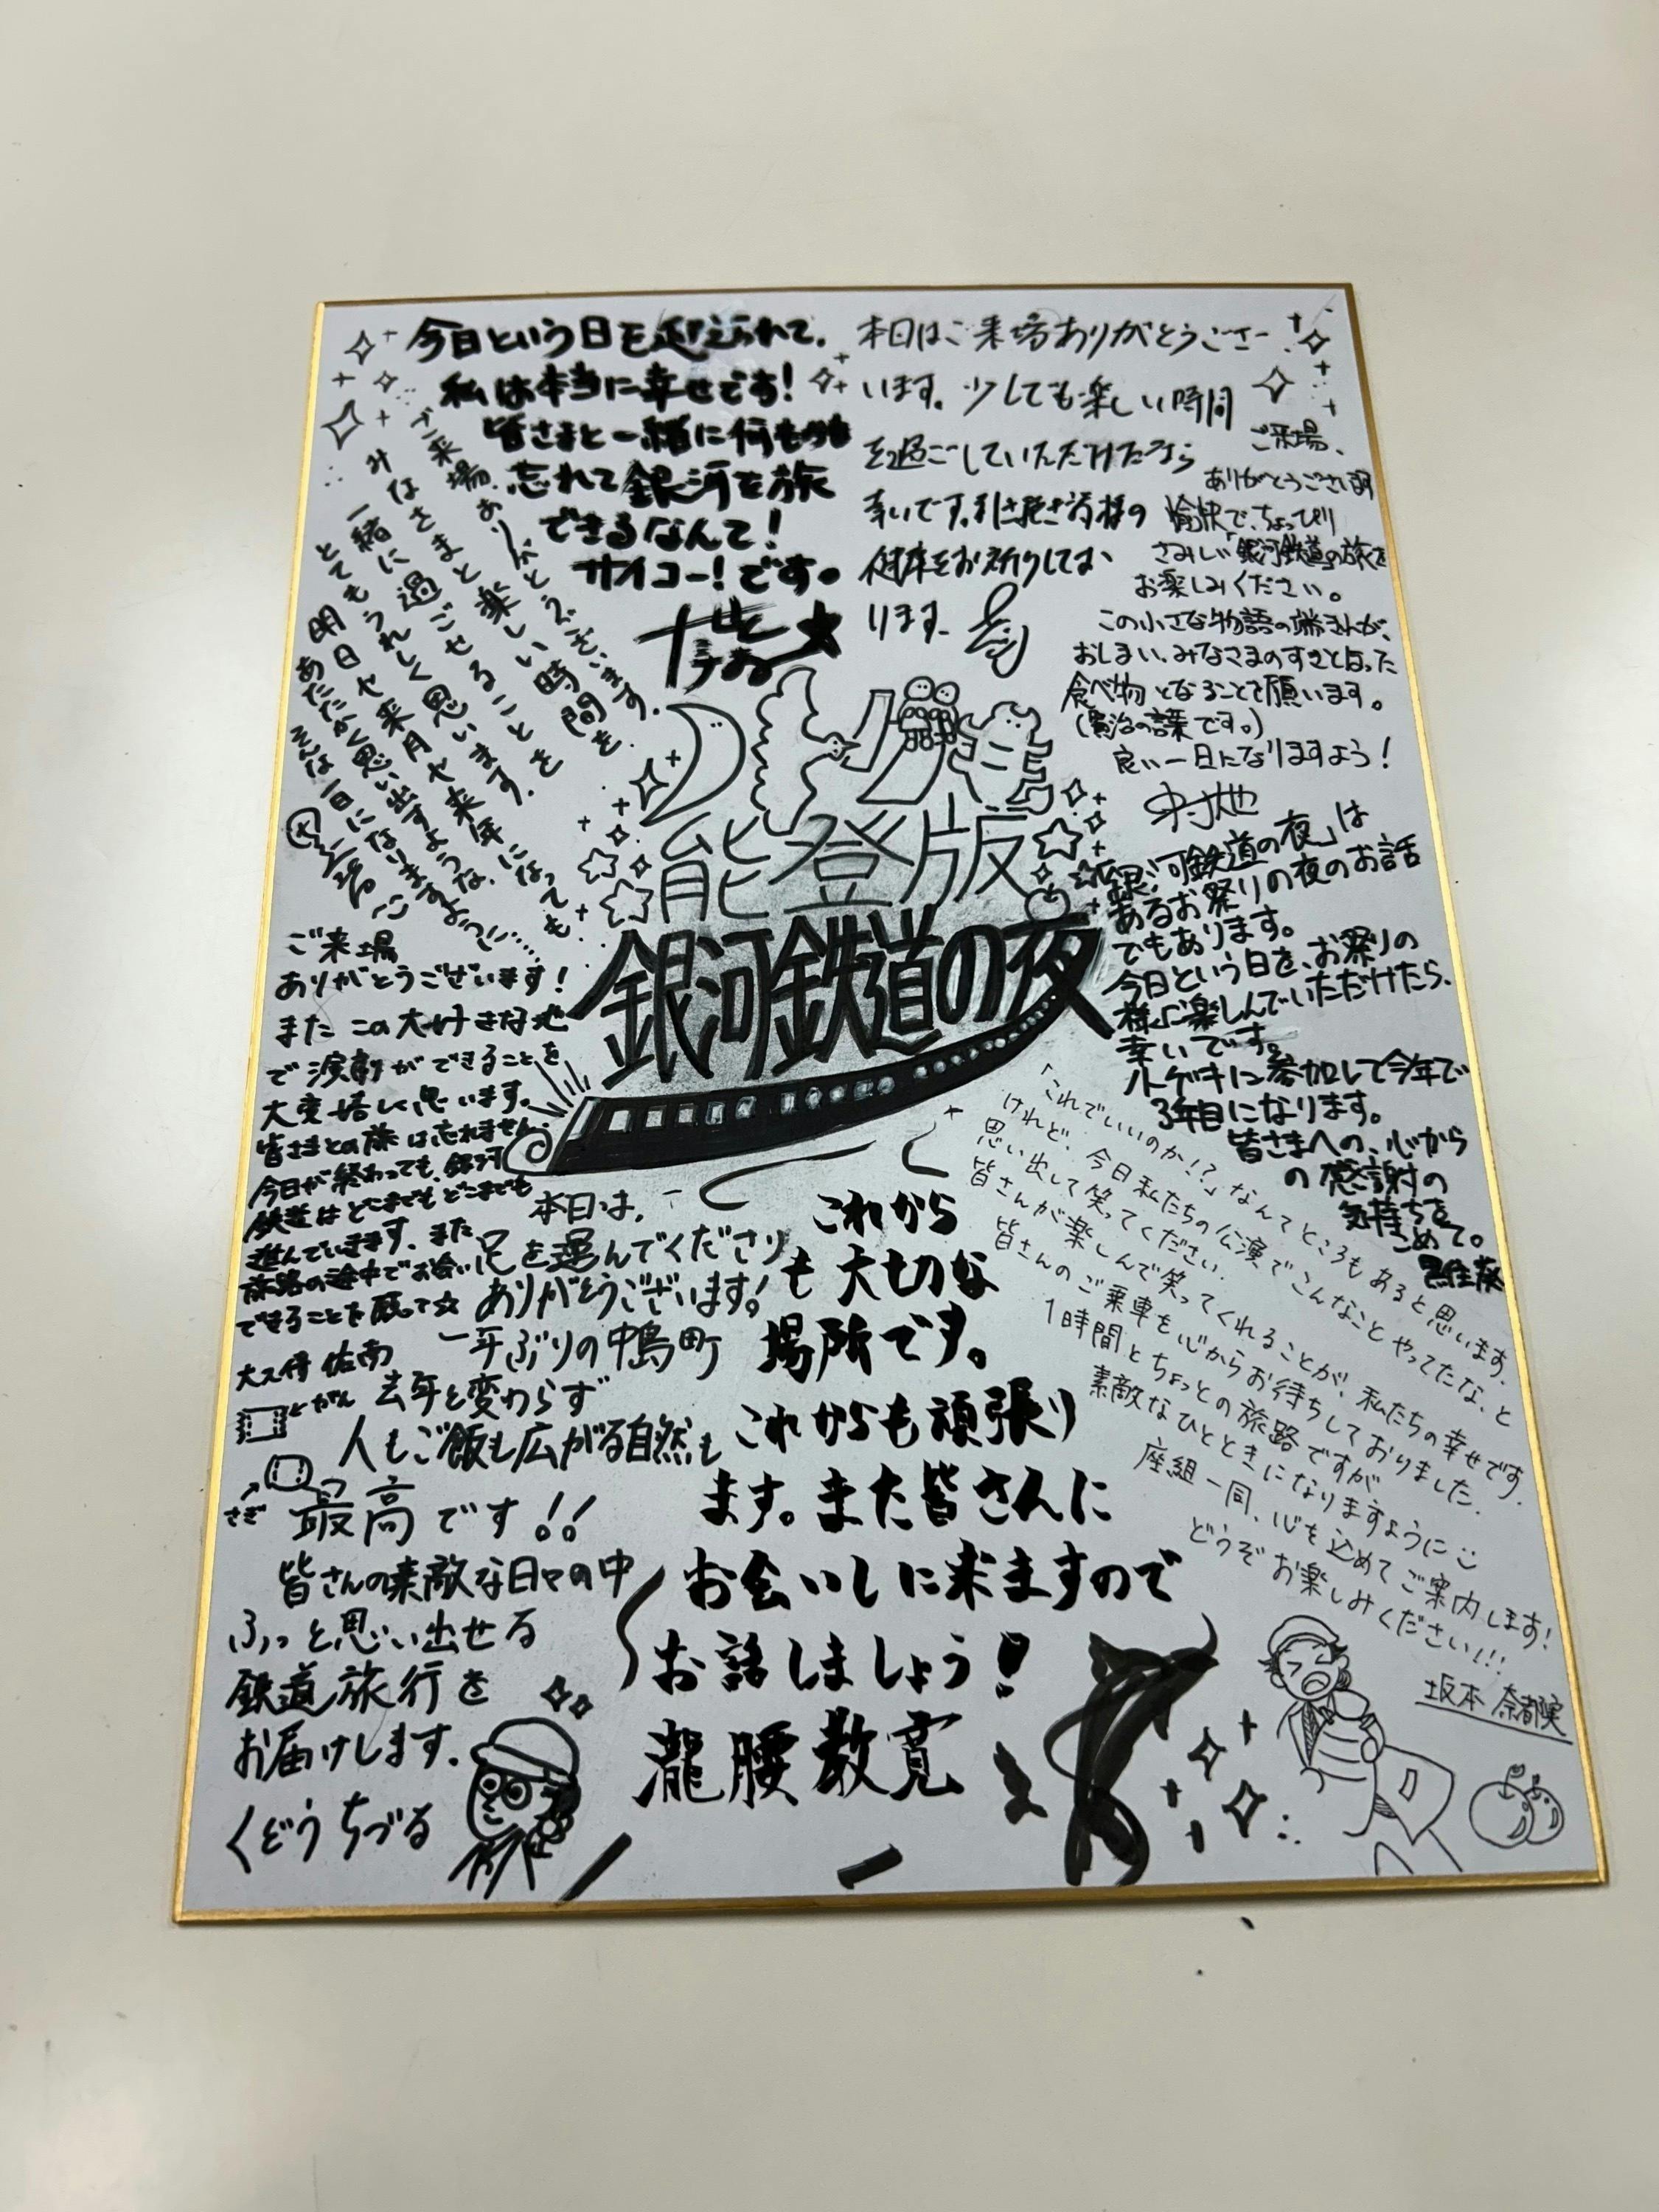 今日という日を迎えられて、
私は本当に幸せです!
皆さまと一緒に何もかも
忘れて銀河を旅
できるなんて!
サイコー!です。
本日はご来場ありがとうござ
います。少しでも楽しい時間
を過ごしていただけたなら
幸いです。引き続き皆様の
健康をお祈りしてお
ります。
ご来場、
ありがとうございます
愉快で、ちょっぴり
さみしい銀河鉄道の旅を
お楽しみください。
この小さな物語の端きれが、
おしまい、みなさまのすきとほった
食べ物となることを願います。
(賢治の言葉です。)
良い一日になりますよう!
ご来場ありがとうございます。
みなさまと楽しい時間を
一緒に過ごせることを
とてもうれしく思います。
明日や来月や来年になっても、
あたたかく思い出すような、
そんな一日になりますように…
能登版
銀河鉄道の夜
「銀河鉄道の夜」は
あるお祭りの夜のお話
でもあります。
今日という日を、お祭りの
様に楽しんでいただけたら、
幸いです。
ノトゲキに参加して今年で
3年目になります。
皆さまへの、心から
の感謝の
気持ちを
こめて。
ご来場
ありがとうございます!
また この大好きな地
で演劇ができることを
大変嬉しく思います。
皆さまとの旅は忘れません。
今日が終わっても、銀河
鉄道はどこまでも、どこまでも
進んでいきます。また、
旅路の途中でお会い
できることを願って☆
大久保 佐南
←がん
さぎ
本日は、
足を運んでくださり
ありがとうございます!
一年ぶりの中島町
去年と変わらず
人もご飯も広がる自然も
最高です!!
皆さんの素敵な日々の中
ふっと思い出せる
鉄道旅行を
お届けします。
くどうちづる
これから
も大切な
場所です。
これからも頑張り
ます。また皆さんに
お会いしに来ますので
お話しましょう!
瀧腰教寛
「これでいいのか!?」なんてところもあると思います。
けれど、今日私たちの公演でこんなことやってたな、と
思い出して笑ってください。
皆さんが楽しんで笑ってくれることが、私たちの幸せです。
皆さんのご乗車を心からお待ちしておりました。
1時間とちょっとの旅路ですが
素敵なひとときになりますように
座組一同、心を込めてご案内します!
どうぞお楽しみください!!
坂本 奈都実